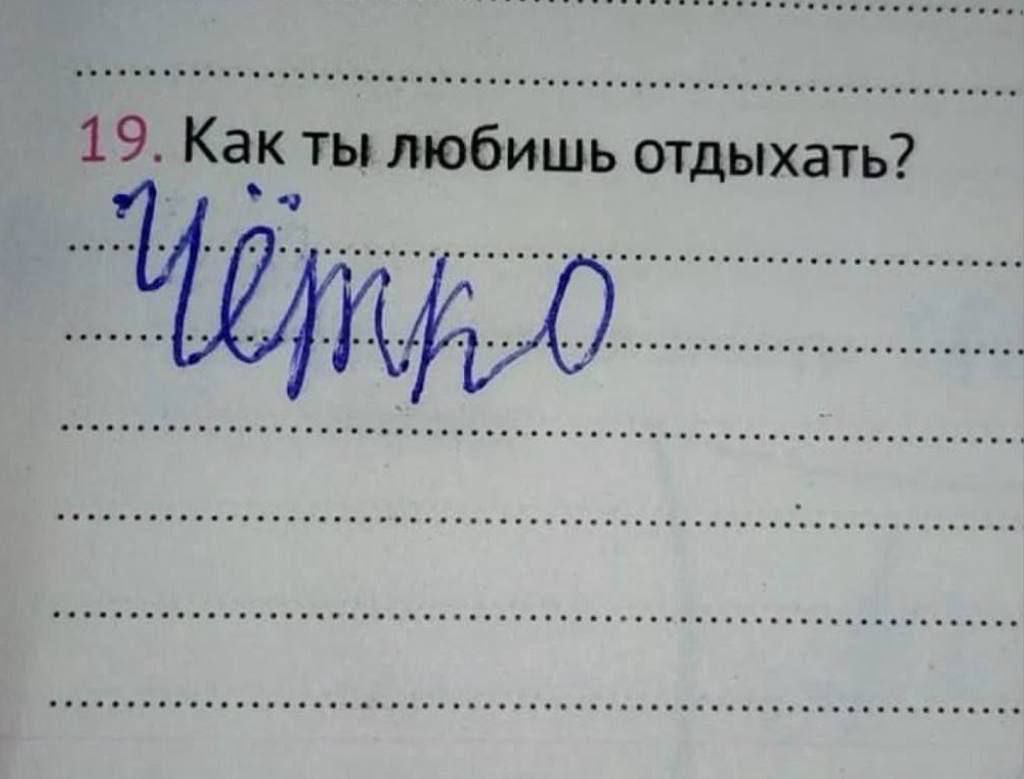 19. Как ты любишь отдыхать?
Чётко